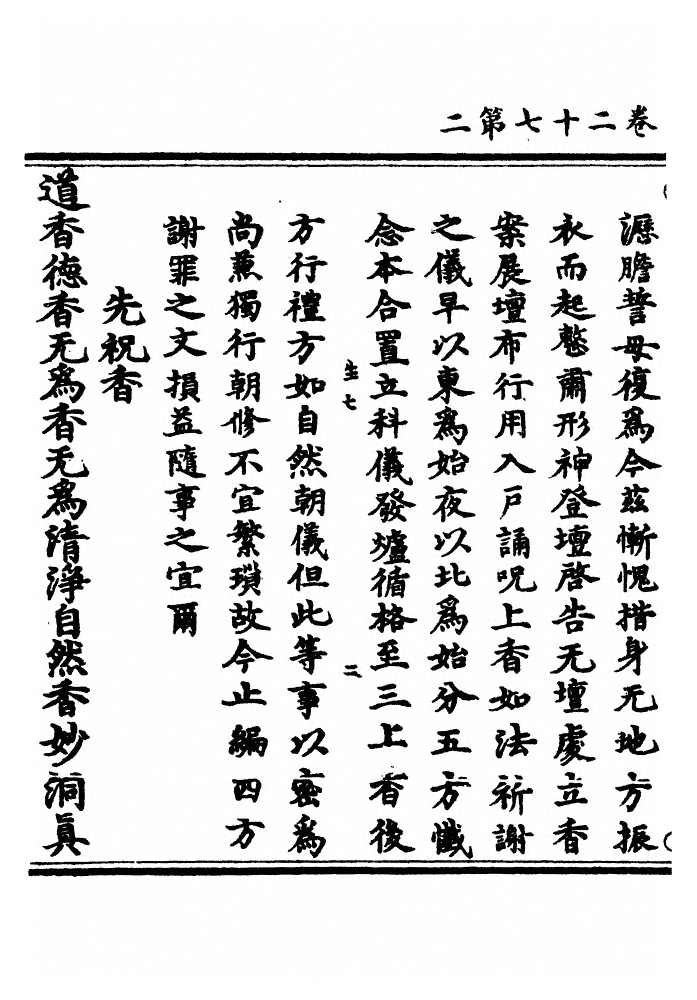 卷二十七第二
瀝膽誓母復爲今兹慚愧措身无地方振
衣而起整肅形神登壇啓告无壇處立香
案展壇布行用入戶誦呪上香如法祈謝
之儀早以東爲始夜以北爲始分五方懺
念本合置立科儀發爐循格至三上香後
生七
二
方行禮方如自然朝儀但此等事以密爲
尚兼獨行朝修不宜繁瑣故今止編四方
謝罪之文損益隨事之宜爾
先祝香
道香德香无爲香无爲清淨自然香妙洞真